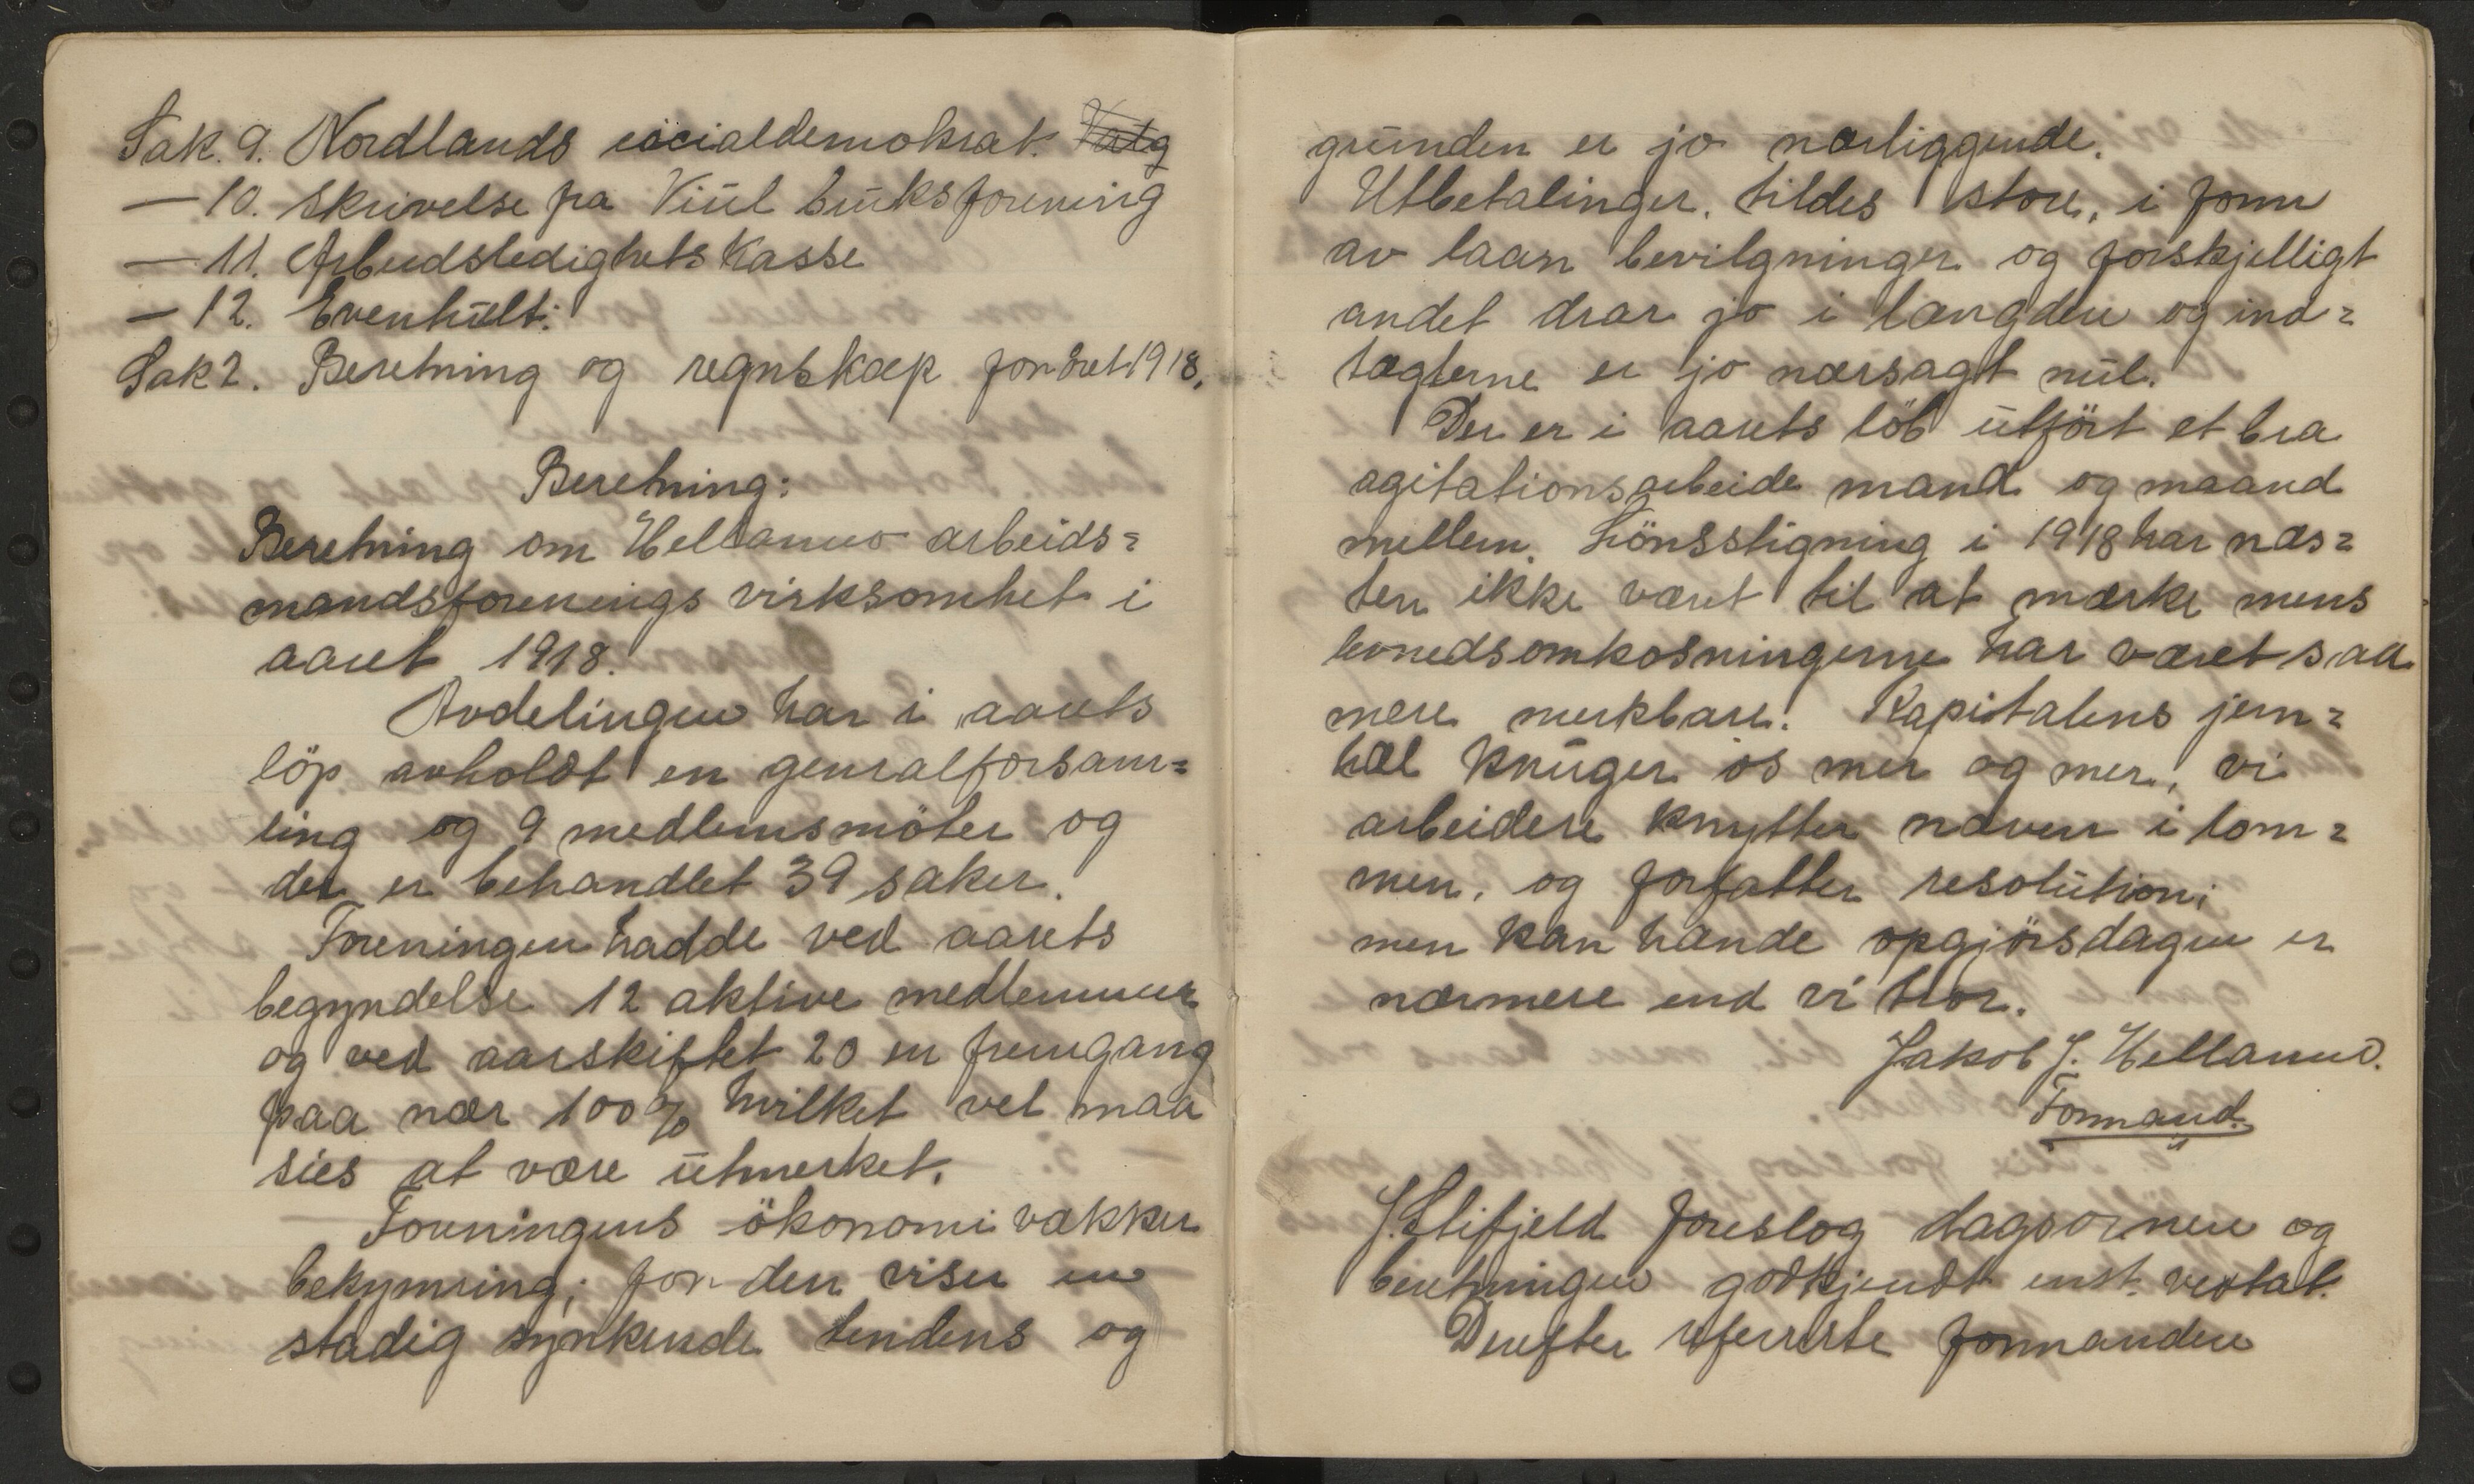 Sak. 9. Nordlands socialdemokrat. Valg
— 10. Skrivelse fra Viul bruksforening
— 11. Arbeidsledighets Kasse
— 12. Eventuelt:
Sak 2. Beretning og regnskap for året 1918.
Beretning:
Beretning om Hellamo arbeids=
mandsforenings virksomhet i
aaret 1918.
Avdelingen har i aarets
löp avholdt en generalforsam=
ling og 9 medlemsmöter og
der er behandlet 39 saker.
Foreningen hadde ved aarets
begyndelse 12 aktive medlemmer
og ved aarskiftet 20 en fremgang
paa nær 100% hvilket vel maa
sies at være utmerket.
Foreningens ökonomi vækker
bekymring; for den viser en
stadig synkende tendens og
grunden er jo nærliggende.
Utbetalinger, tildes store, i form
av laan bevilgninger og forskjelligt
andet drar jo i længden og ind=
tægterne er jo nærsagt nul.
Der er i aarets löb utfört et bra
agitationsarbeide mand og maand
mellem. Lönsstigning i 1918 har næs=
ten ikke været til at mærke mens
levnedsomkosningerne har været saa
mere merkbare. Kapitalens jern=
hæl knuger os mer og mer, vi
arbeidere knytter næven i lom=
men, og forfatter resolution;
men kan hænde opgjörsdagen er
nærmere end vi tror.
Jakob J. Hellamo.
Formand.
J. Slifjeld foreslog dagsornen og
beretningen godkjendt enst. vedtat.
Derefter refererte formanden